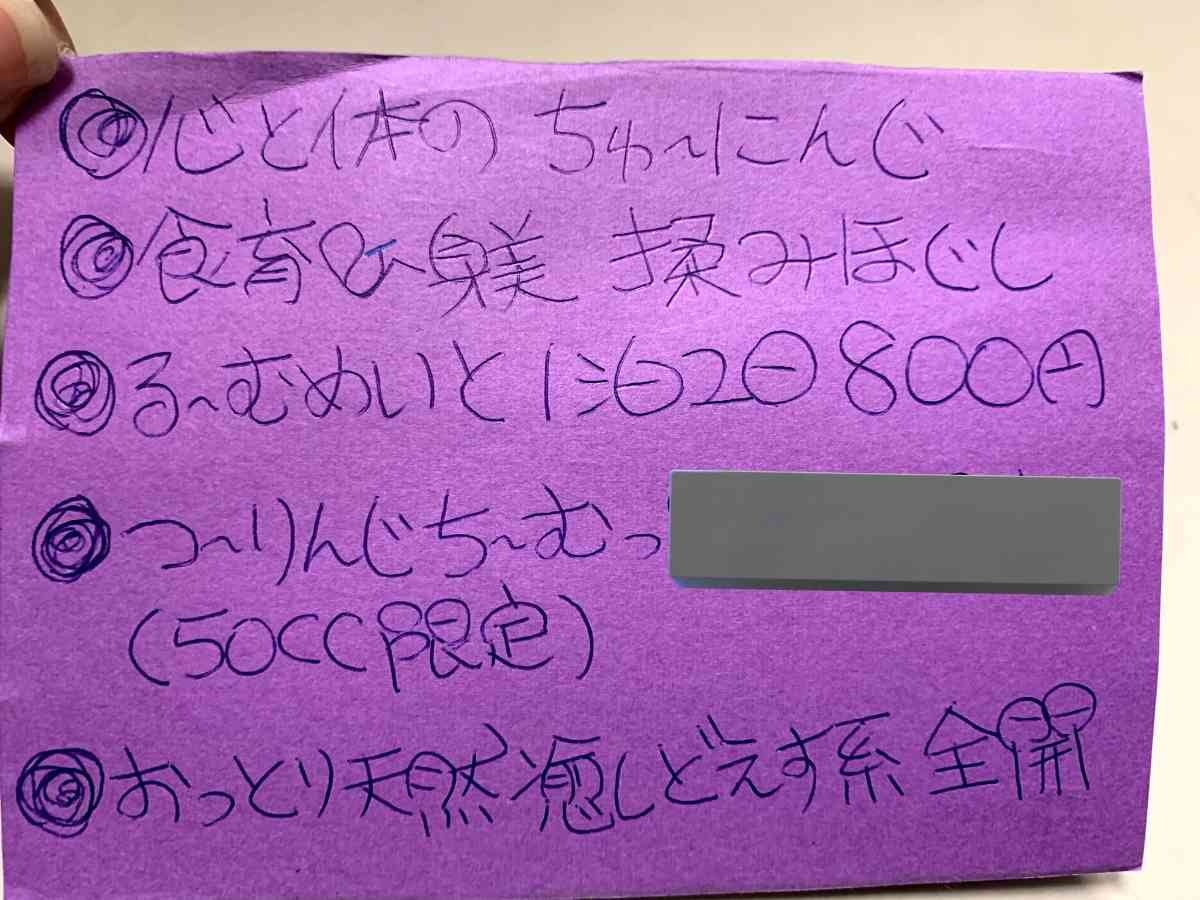 ◎心と体の ちゅ〜にんぐ
◎食育&躾 揉みほぐし
◎る〜むめいと 1泊2日800円
◎つ〜りんぐち〜むっ
(50CC限定)
◎おっとり天然癒しどえす系 全開